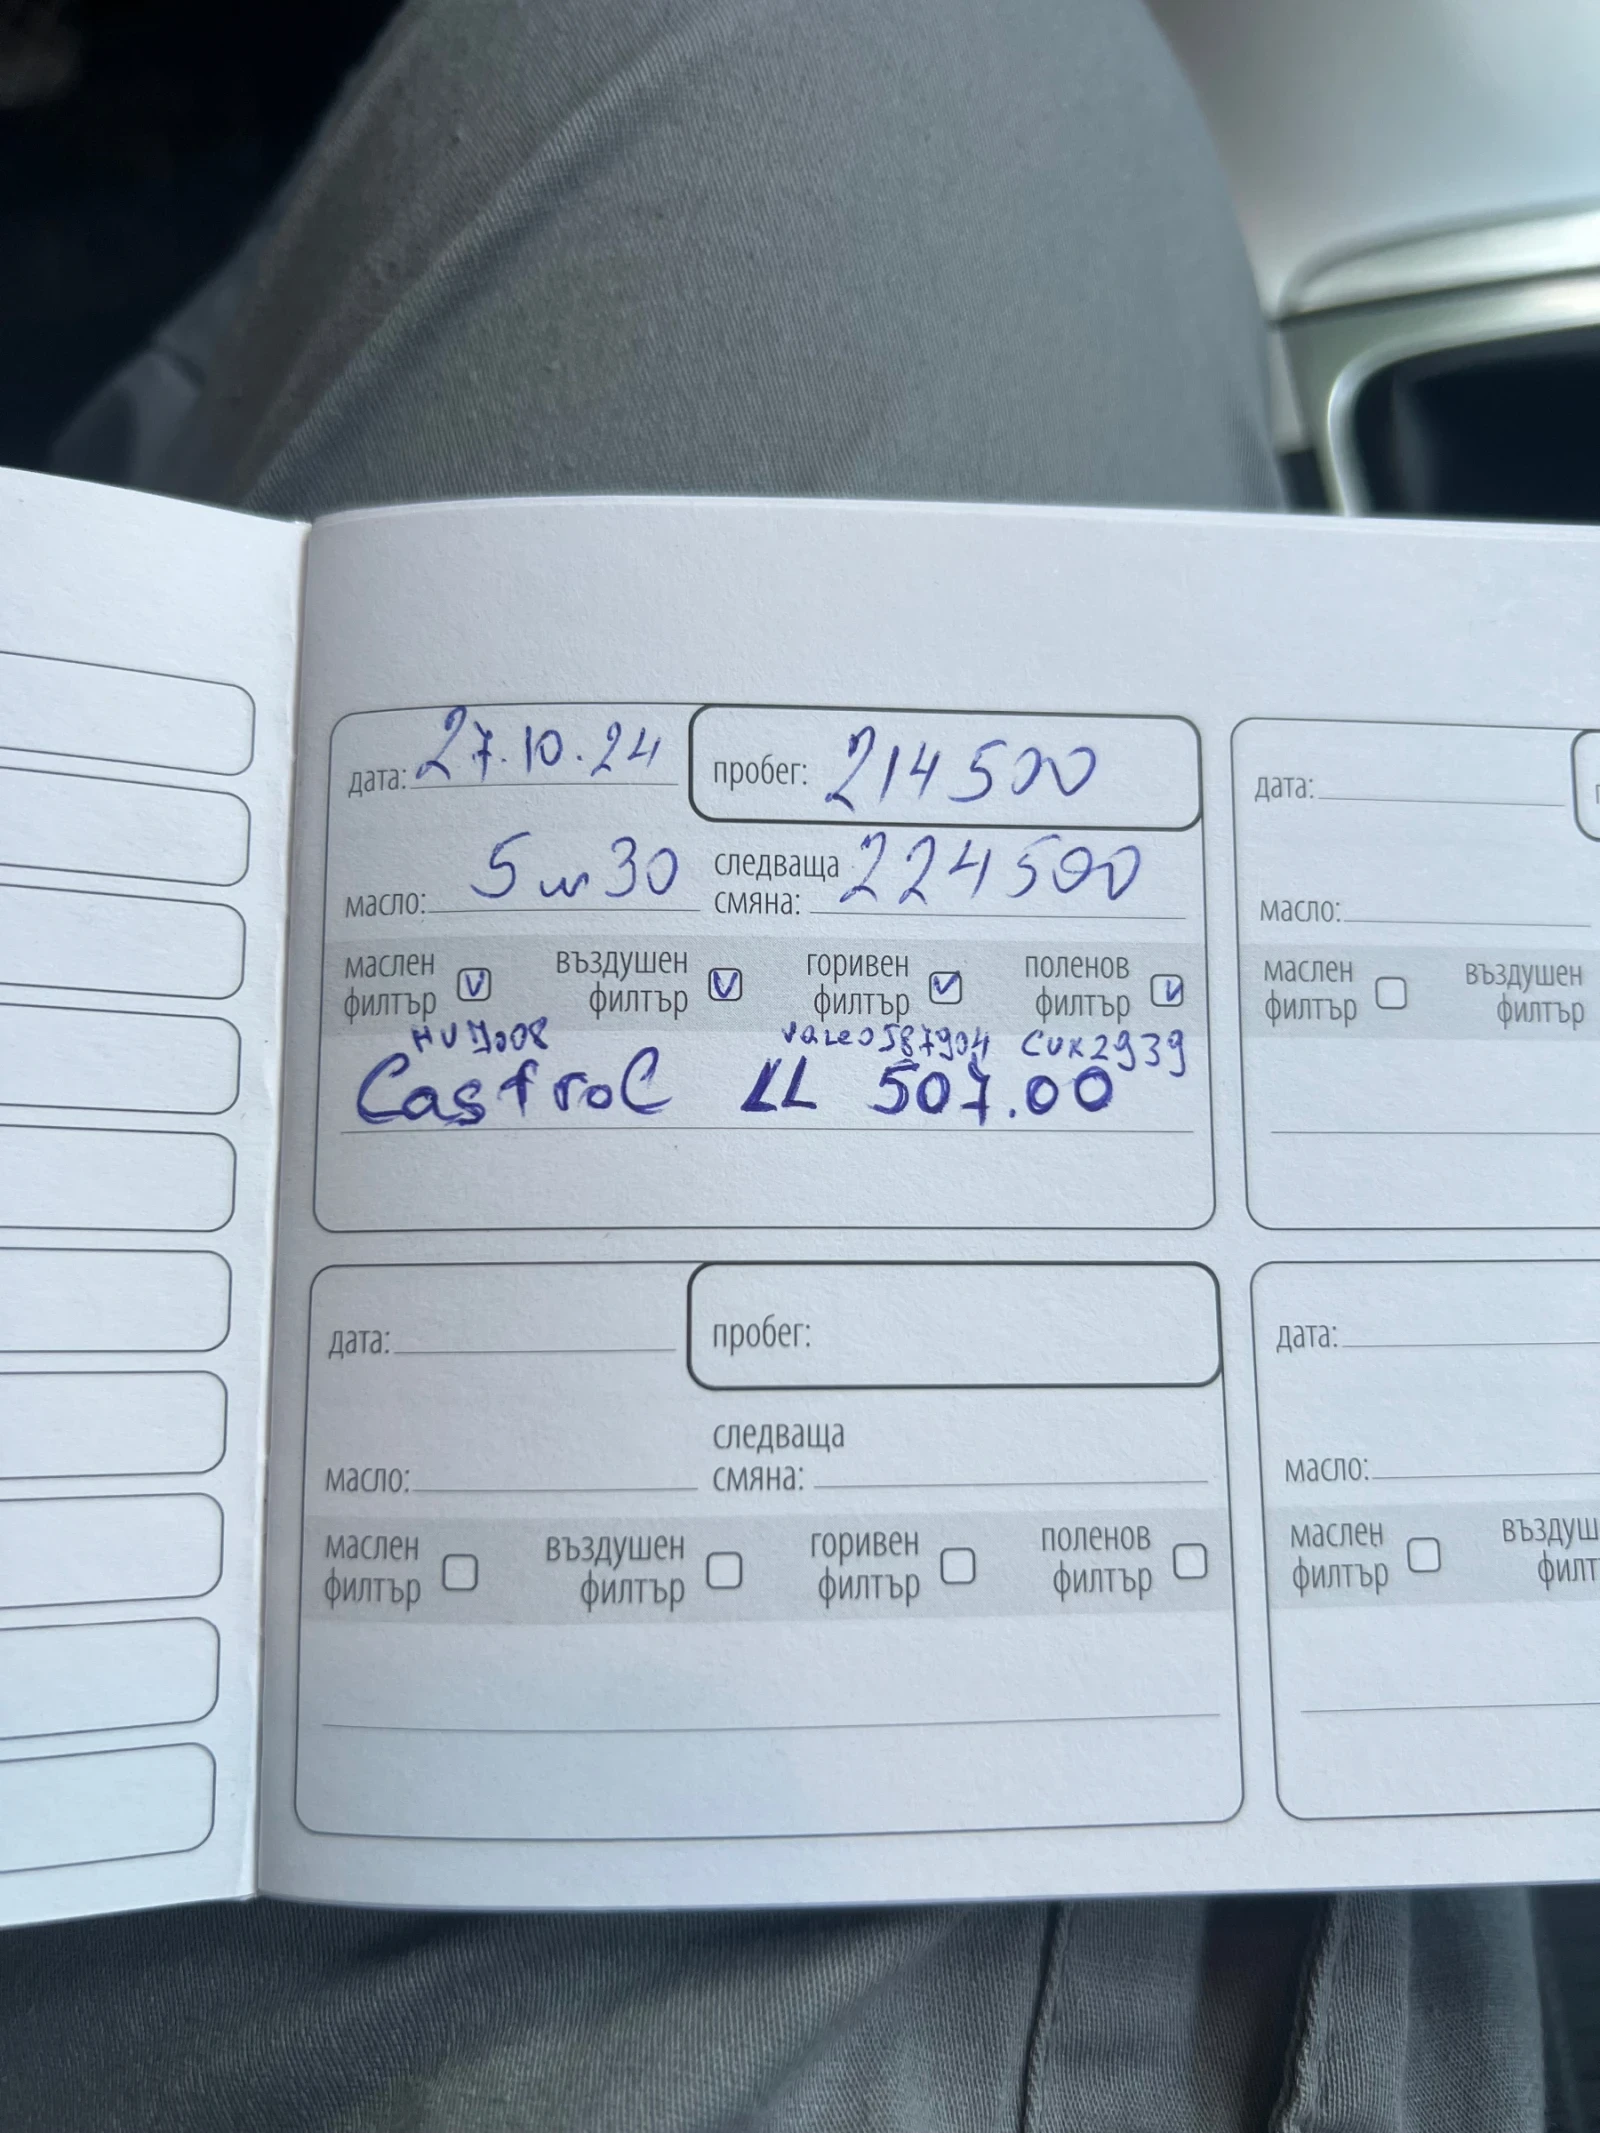 дата: 27.10.24 пробег: 214500
масло: 5w30 следваща смяна: 224500
маслен филтър V въздушен филтър V горивен филтър V поленов филтър V
HU7008 CUK2939
Castrol LL 507.00
дата: пробег:
следваща
масло: смяна:
маслен филтър въздушен филтър горивен филтър поленов филтър
дата:
масло:
маслен филтър въздушен филтър
дата:
масло:
маслен филтър